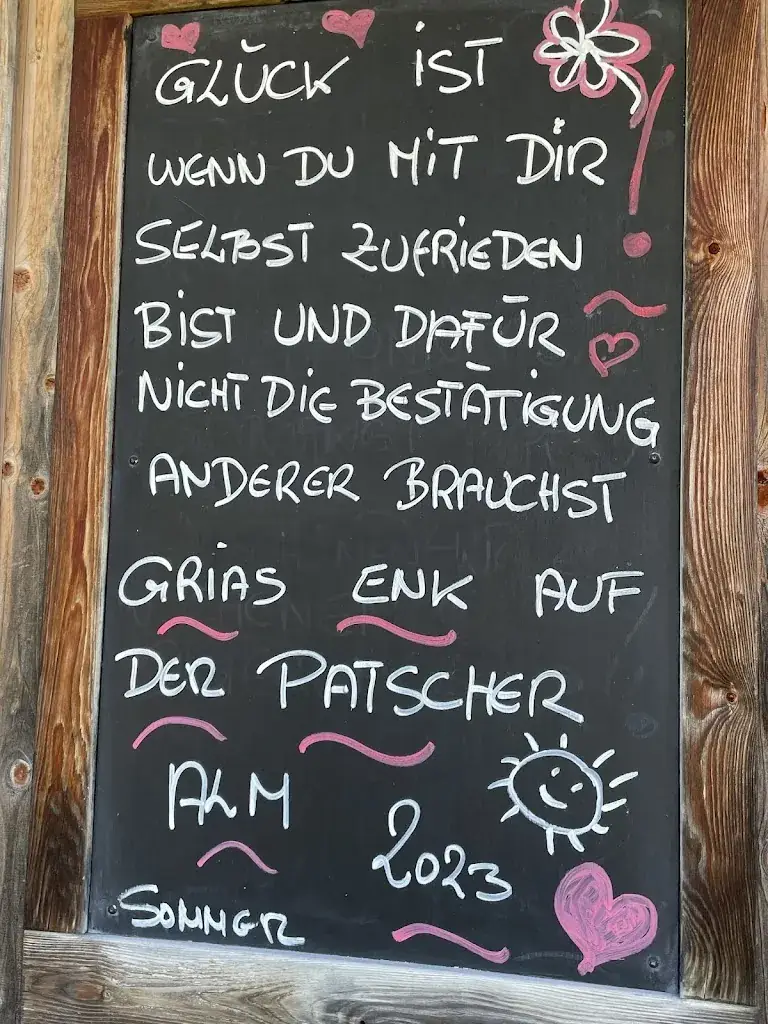 GLÜCK IST
WENN DU MIT DIR
SELBST ZUFRIEDEN
BIST UND DAFÜR
NICHT DIE BESTÄTIGUNG
ANDERER BRAUCHST
GRIAS ENK AUF
DER PATSCHER
ALM
2023
SOMMER